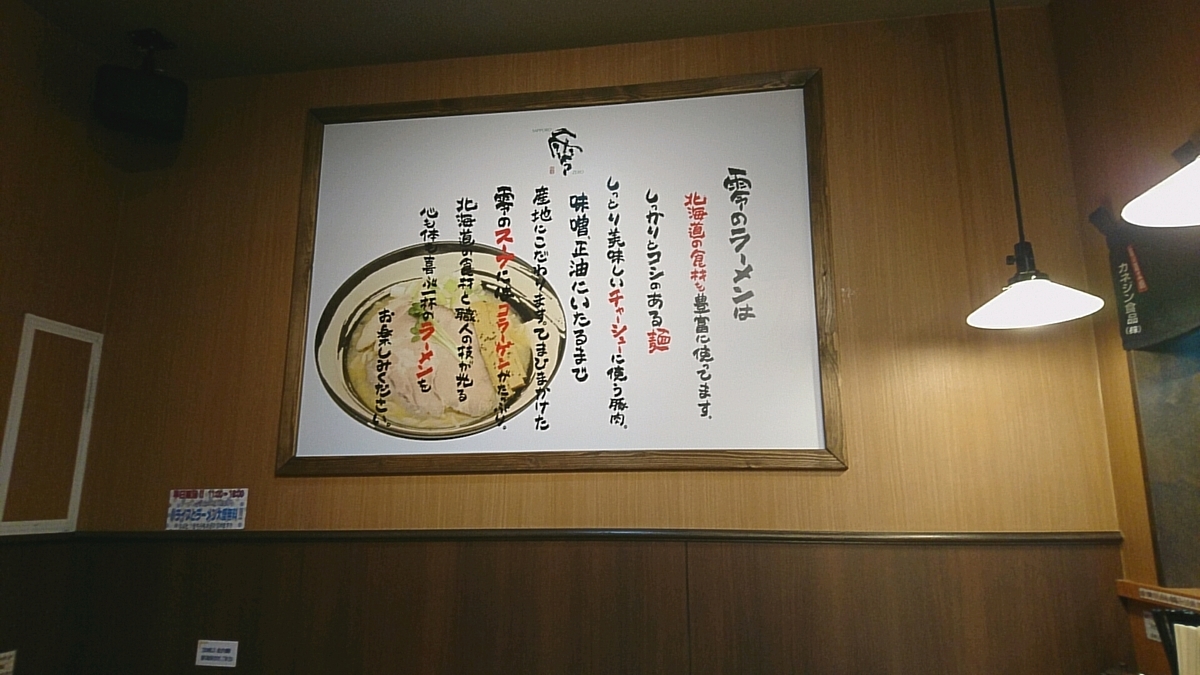 零
零のラーメンは
北海道の食材を豊富に使ってます。
しっかりとコシのある麺
しっとり美味しいチャーシューに使う豚肉。
味噌、正油にいたるまで
産地にこだわります。てまひまかけた
零のスープにはコラーゲンがたっぷり。
北海道の食材と職人の技が光る
心も体も喜ぶ一杯のラーメンを
お楽しみください。
カネジン食品(株)